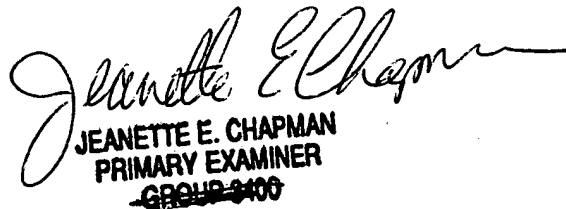 Jeanette E Chapman
JEANETTE E. CHAPMAN
PRIMARY EXAMINER
GROUP 3400